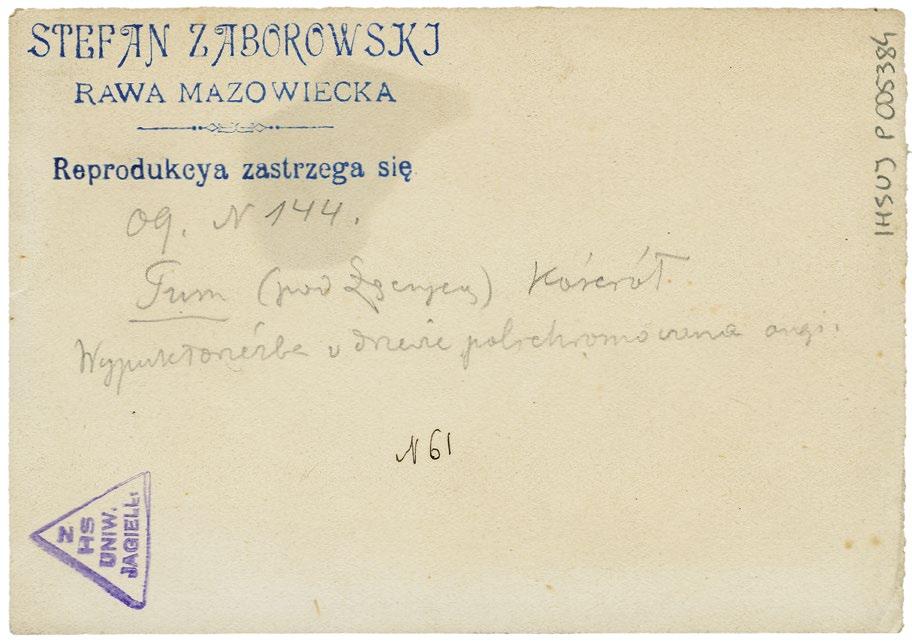 STEFAN ZABOROWSKI
RAWA MAZOWIECKA
Reprodukcya zastrzega się
Og. N 144.
Tum (pod Łęczycą) Kościół
Wypukłorzeźba w drzewie polichromowana ongi.
N 61
Z
HS
UNIW.
JAGIELL.
IHSUJ P 005384